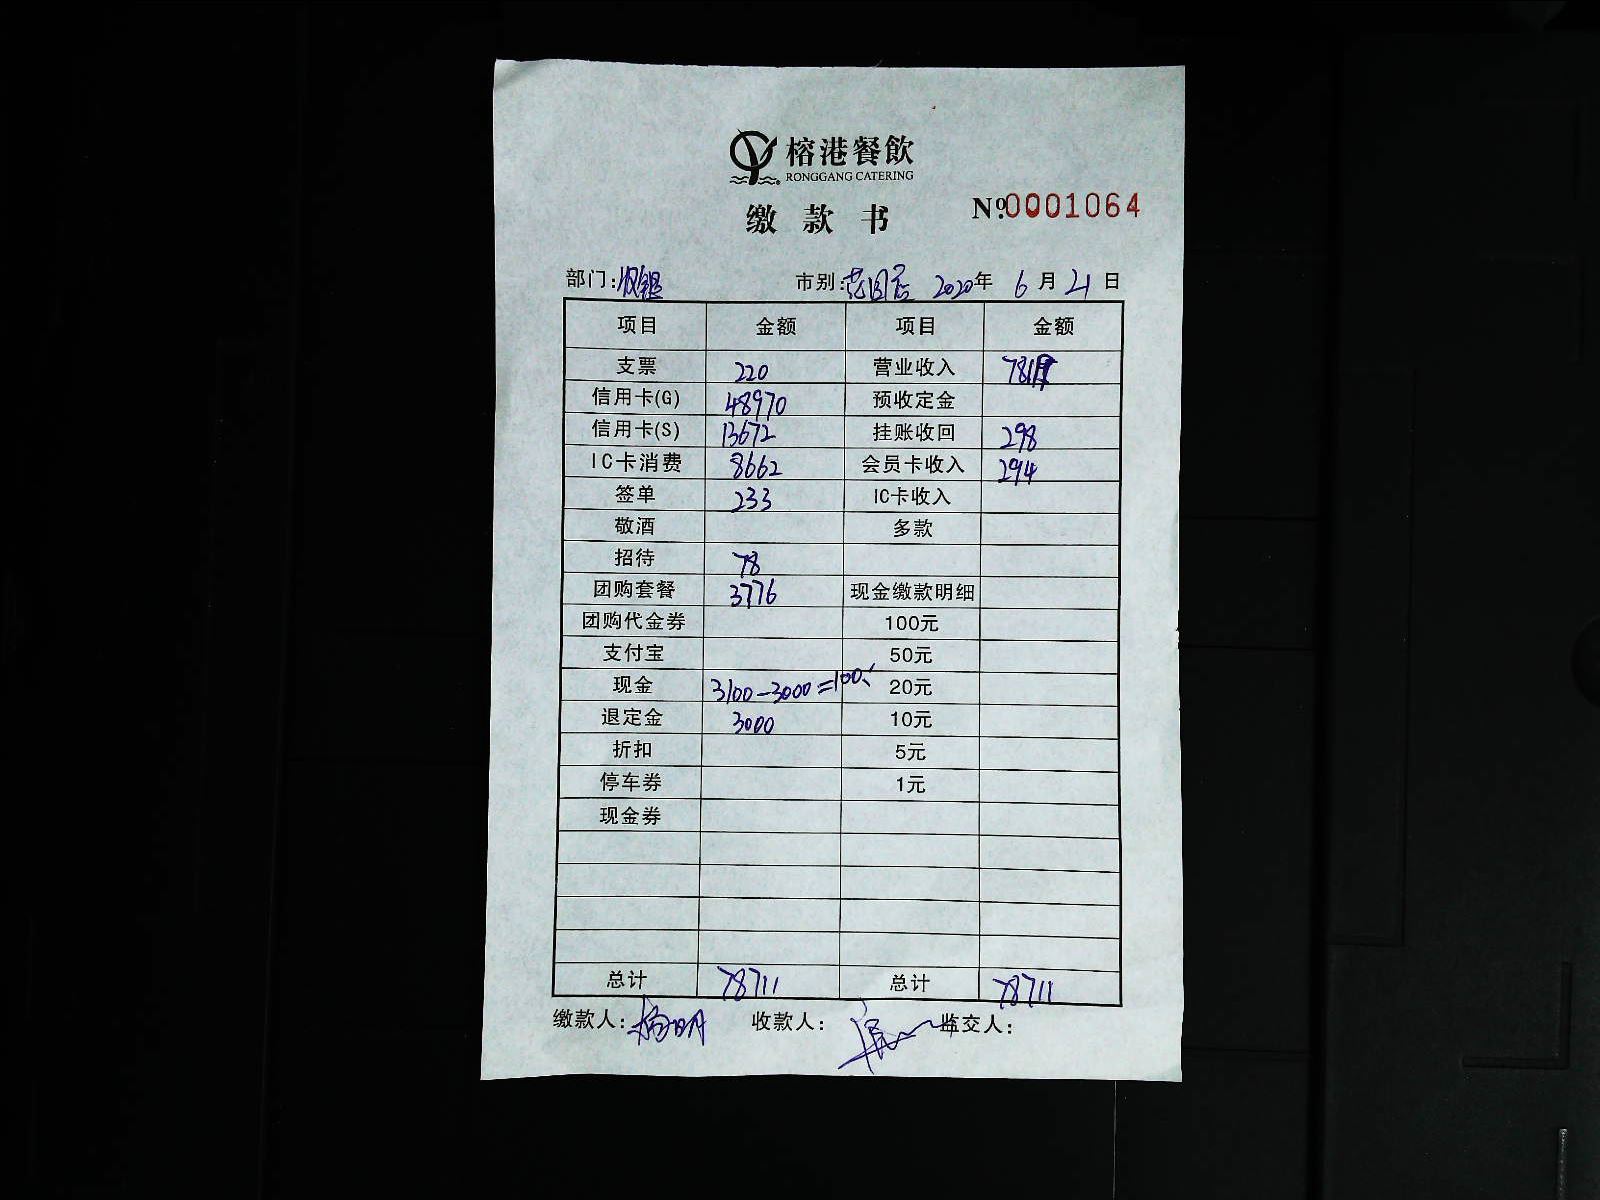 榕港餐飲
RONGGANG CATERING
缴款书 №0001064
部门:收银 市别:花园店 2020年 6月21日
项目 金额 项目 金额
支票 220 营业收入 78119
信用卡(G) 48970 预收定金
信用卡(S) 13672 挂账收回 298
IC卡消费 8662 会员卡收入 294
签单 233 IC卡收入
敬酒 多款
招待 78
团购套餐 3776 现金缴款明细
团购代金券 100元
支付宝 50元
现金 3100-3000=100 20元
退定金 3000 10元
折扣 5元
停车券 1元
现金券
总计 78711 总计 78711
缴款人:杨明 收款人: 监交人: